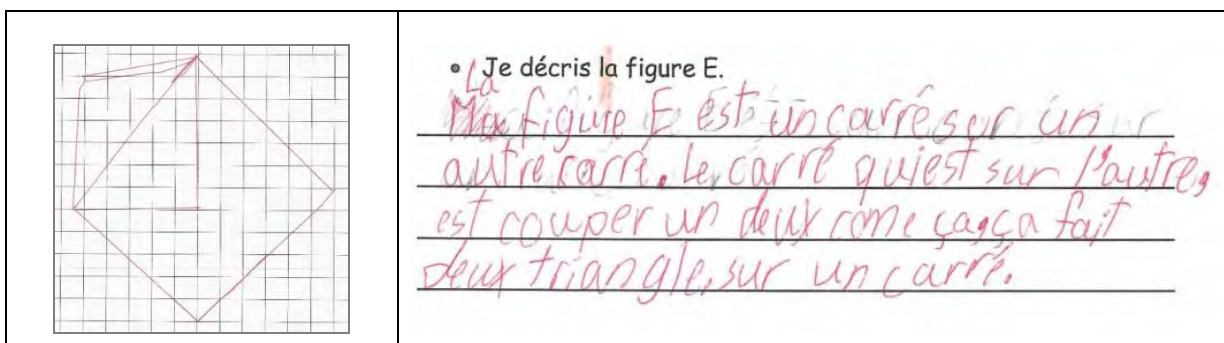 • Je décris la figure E.
La
figure E est un carré sur un
autre carré. Le carré qui est sur l'autre,
est couper un deux come ça, ça fait
deux triangle, sur un carré.